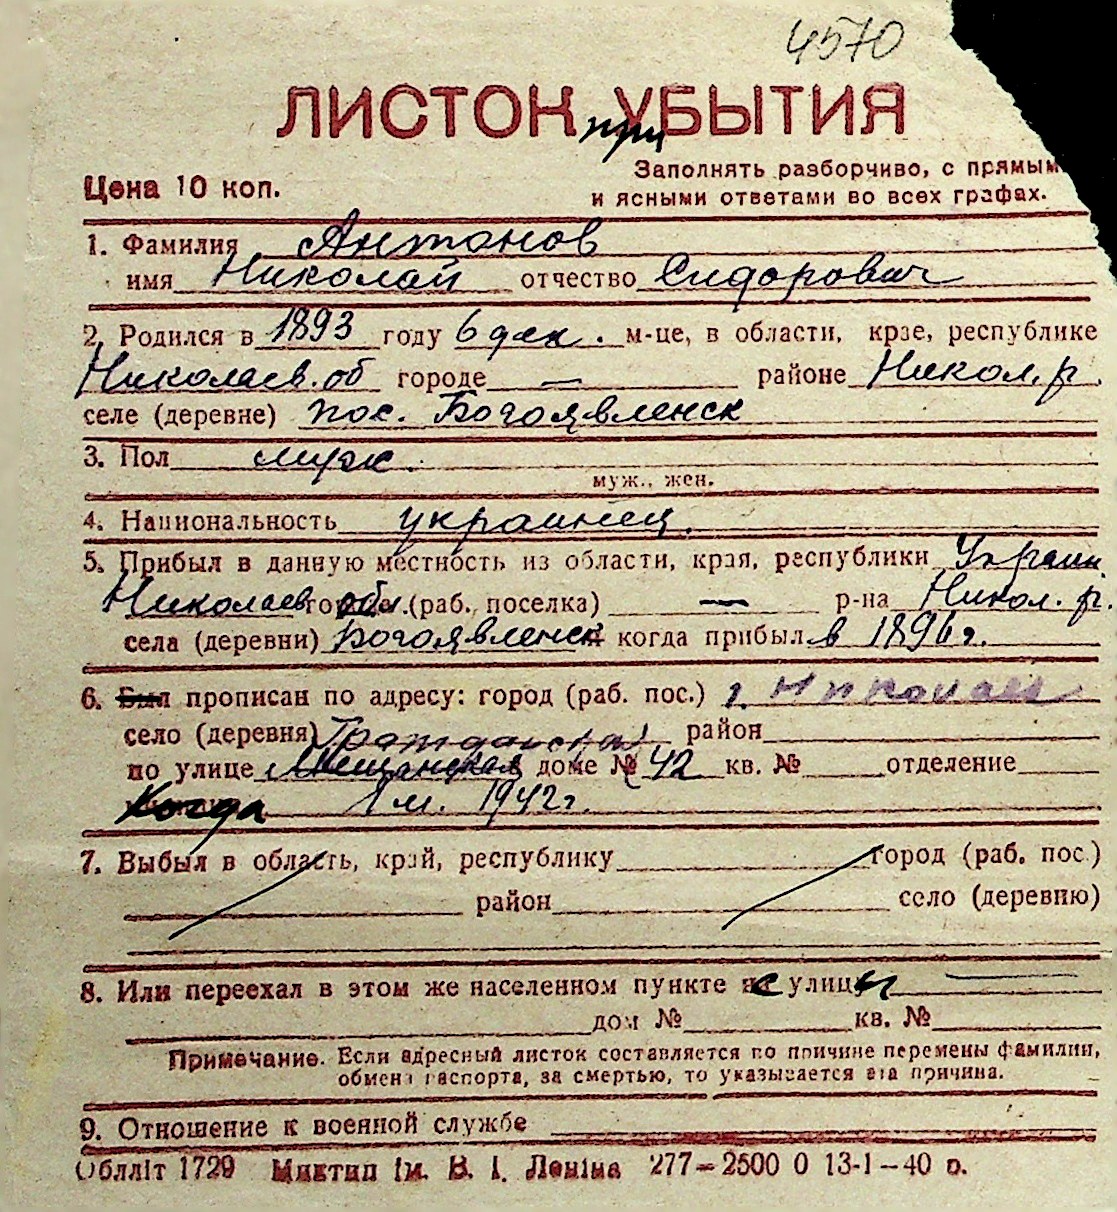 4570
ЛИСТОК УБЫТИЯ
при
Заполнять разборчиво, с прямым
Цена 10 коп.
и ясными ответами во всех графах.
1. Фамилия Антонов
имя Николай отчество Сидорович
2. Родился в 1893 году 6 дек. м-це, в области, крае, республике
Николаев. об городе — районе Никол. р.
селе (деревне) пос. Богоявленск
3. Пол муж.
муж., жен.
4. Национальность украинец.
5. Прибыл в данную местность из области, края, республики Украин
Николаев обл. (раб. поселка) — р-на Никол. р.
села (деревни) Богоявленск когда прибыл в 1896 г.
6. Был прописан по адресу: город (раб. пос.) г. Николаев
село (деревня) Гражданская район
по улице Мещанская доме № 42 кв. № отделение
Когда 1942 г.
7. Выбыл в область, край, республику город (раб. пос.)
район село (деревню)
8. Или переехал в этом же населенном пункте с улицы
дом № кв. №
Примечание. Если адресный листок составляется по причине перемены фамилии,
обмена паспорта, за смертью, то указывается эта причина.
9. Отношение к военной службе
Обллiт 1729 Миктип iм. В. I. Ленiна 277–2500 0 13-1–40 р.